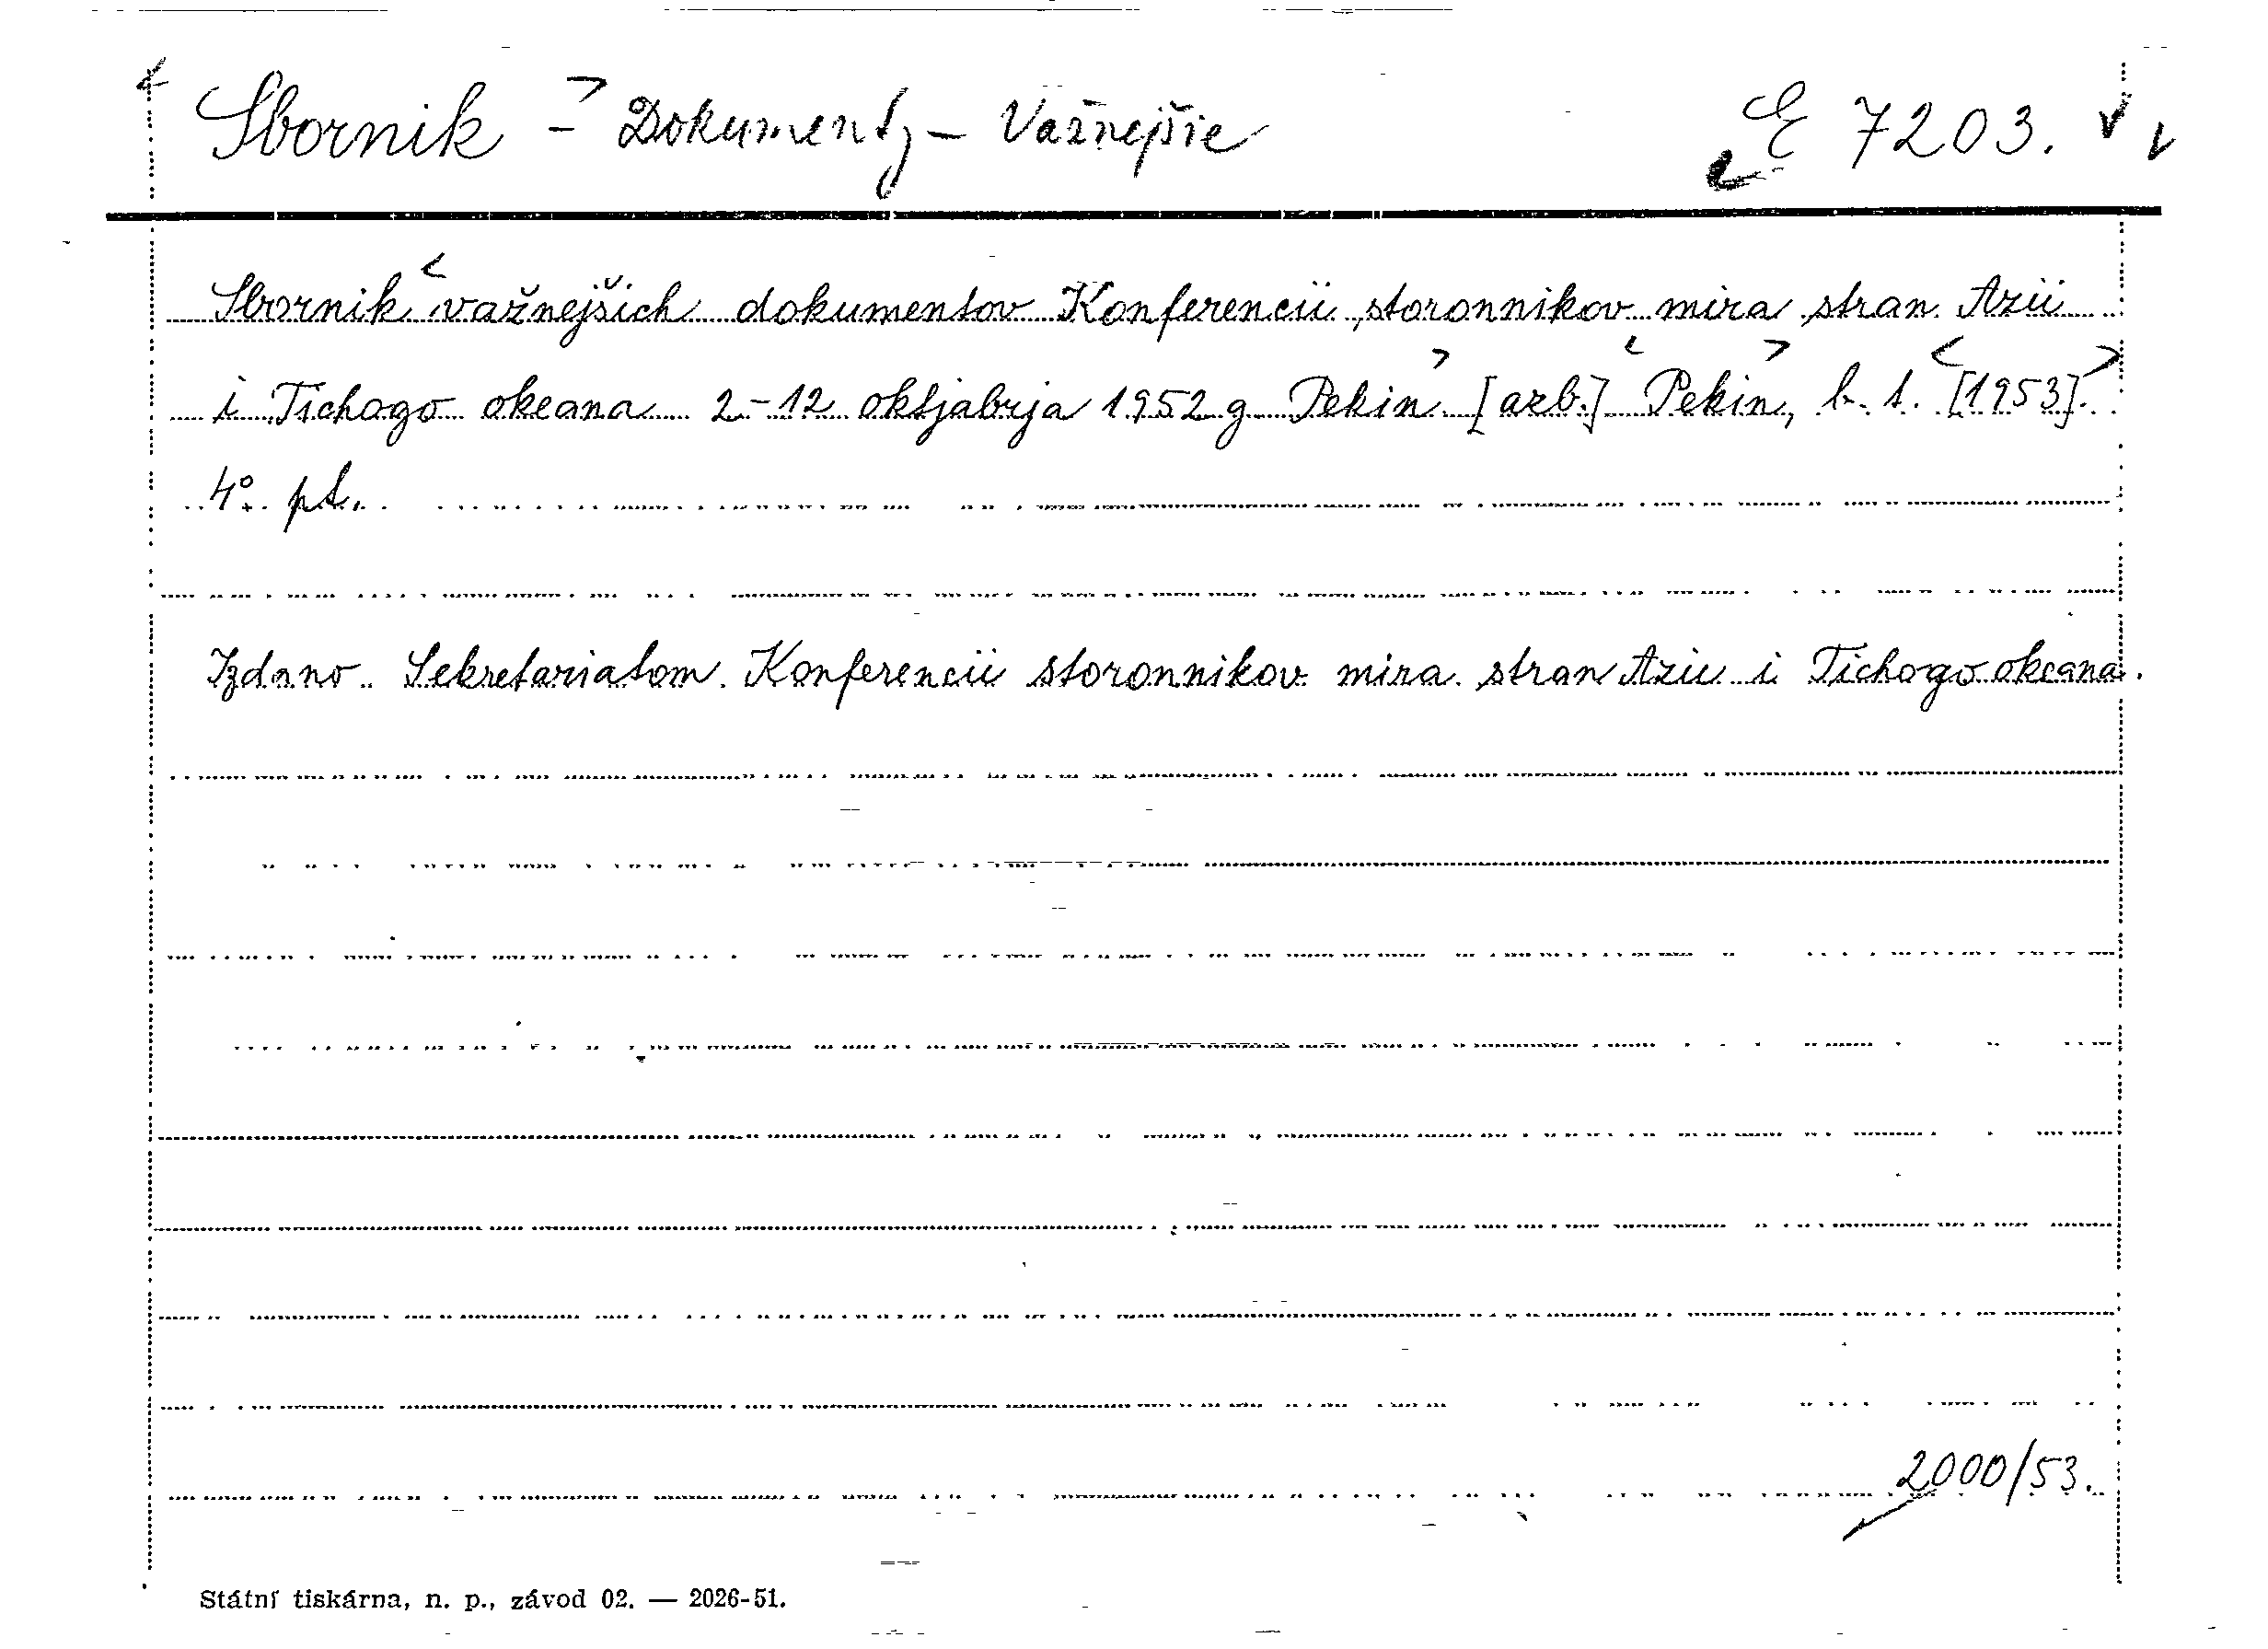 Sbornik - Dokumenty - Važnejšie E 7203.
Sbornik važnejšich dokumentov Konferencii storonnikov mira stran Azii
i Tichogo okeana 2.-12 oktjabrja 1952 g. Pekin [azb.] Pekin, b. t. [1953].
4°. pt.
Izdano Sekretariatom Konferencii storonnikov mira stran Azii i Tichogo okeana.
2000/53.
Státní tiskárna, n. p., závod 02. — 2026-51.